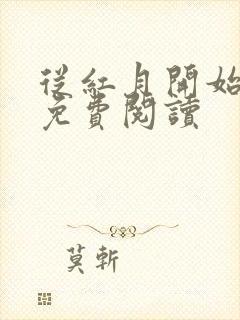 從紅月開始
免費閱讀
莫斬